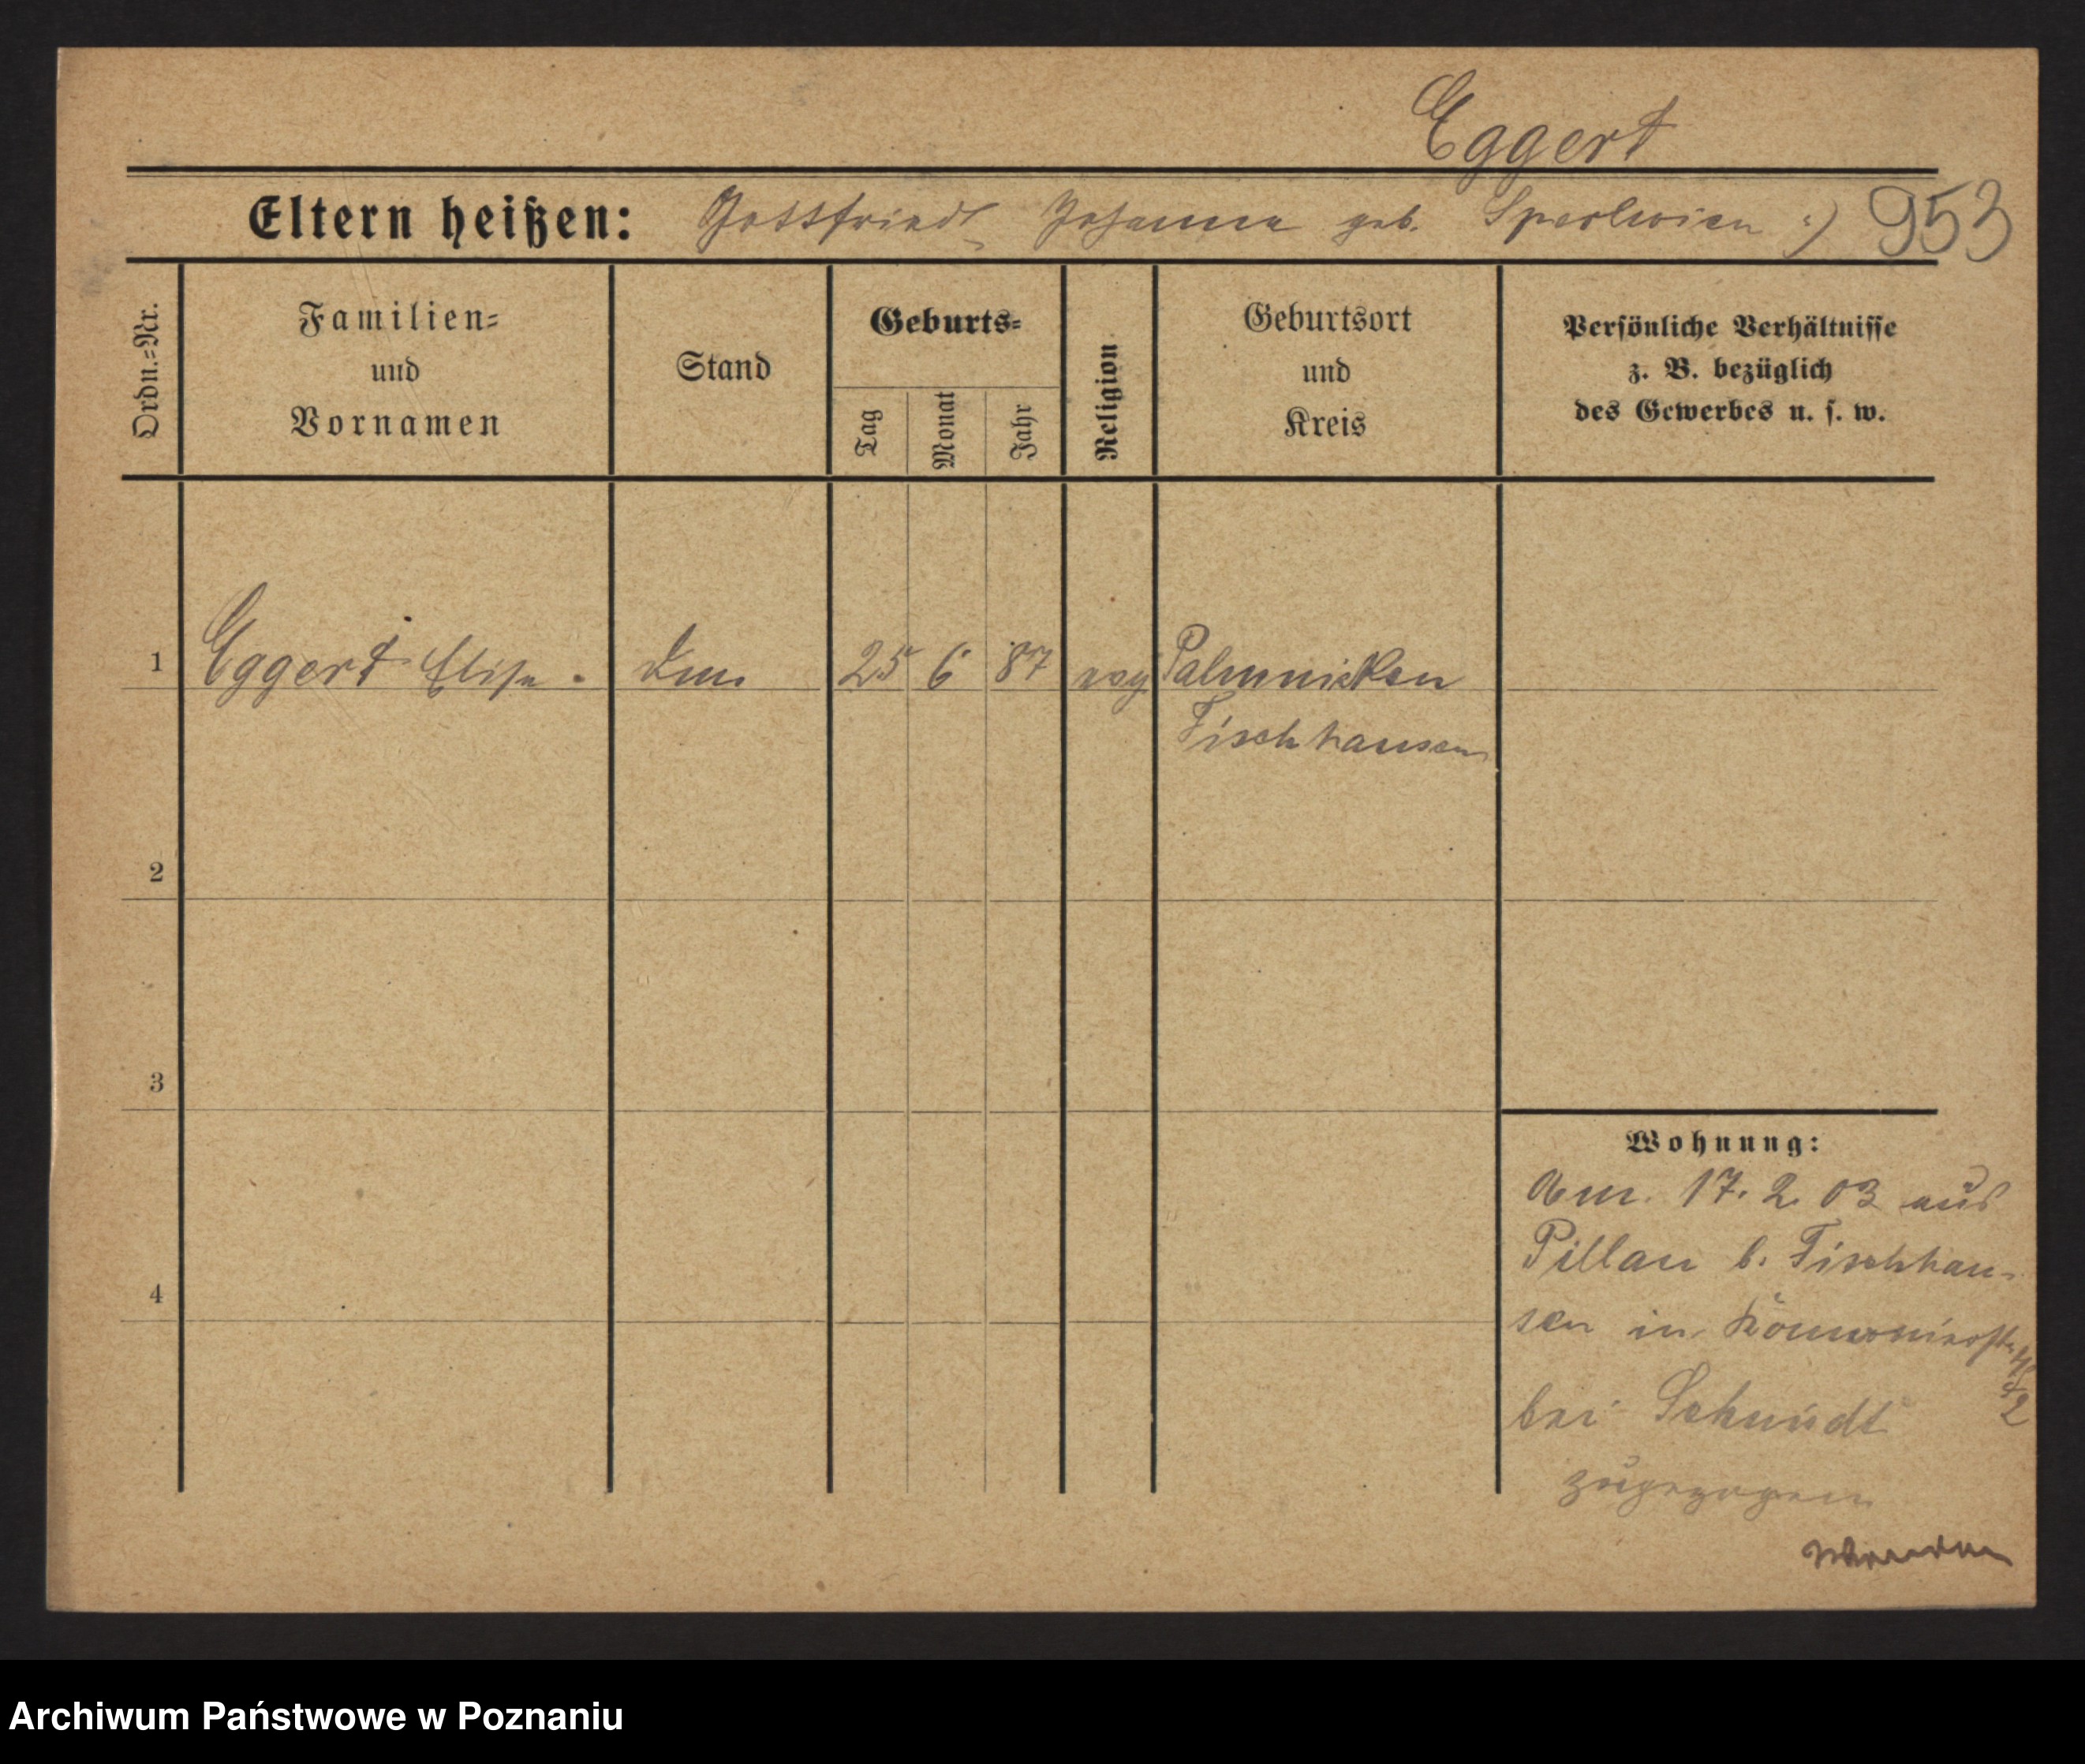 Eggert
Eltern heißen: Gottfried, Johanna geb. Sperlwien :) 953
Ordn.=Nr.
Familien=
und
Vornamen
Stand
Geburts=
Tag
Monat
Jahr
Religion
Geburtsort
und
Kreis
Persönliche Verhältnisse
z. B. bezüglich
des Gewerbes u. s. w.
1 Eggert Elise. 25 6 87 evg Palmnicken
Fischhausen
2
3
4
Wohnung:
Am. 17. 2. 03 aus
Pillau b. Fischhau-
sen in
bei Schmidt
zugezogen
Archiwum Państwowe w Poznaniu